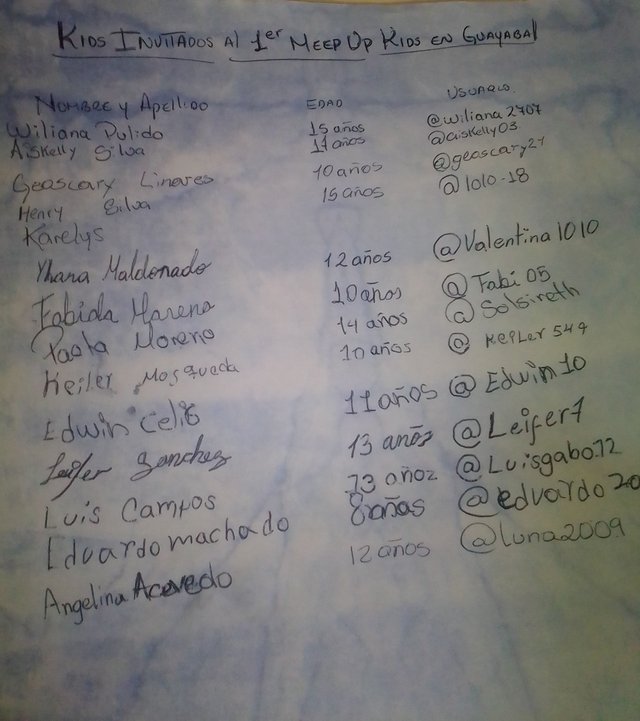 Kids Invitados al 1er MeepUp Kids en Guayabal
Nombre y Apellido EDAD USUARIO.
Wiliana Pulido 15 años @wiliana2707
Aiskelly Silva 11 años @aiskelly03
Geoscary Linares 10 años @geoscary21
Henry Silva 15 años @lolo-18
Karelys
Yhana Maldonado 12 años @Valentina1010
Fabida Moreno 10 años @Fabi05
Paola Moreno 14 años @Solsireth
Keiler Mosqueda 10 años @KEPLER549
Edwin Celis 11 años @Edwin10
Leifer Sanchez 13 años @Leifer7
Luis Campos 13 añoz @Luisgabo.72
Eduardo machado 8 años @eduardo20
Angelina Acevedo 12 años @luna2009